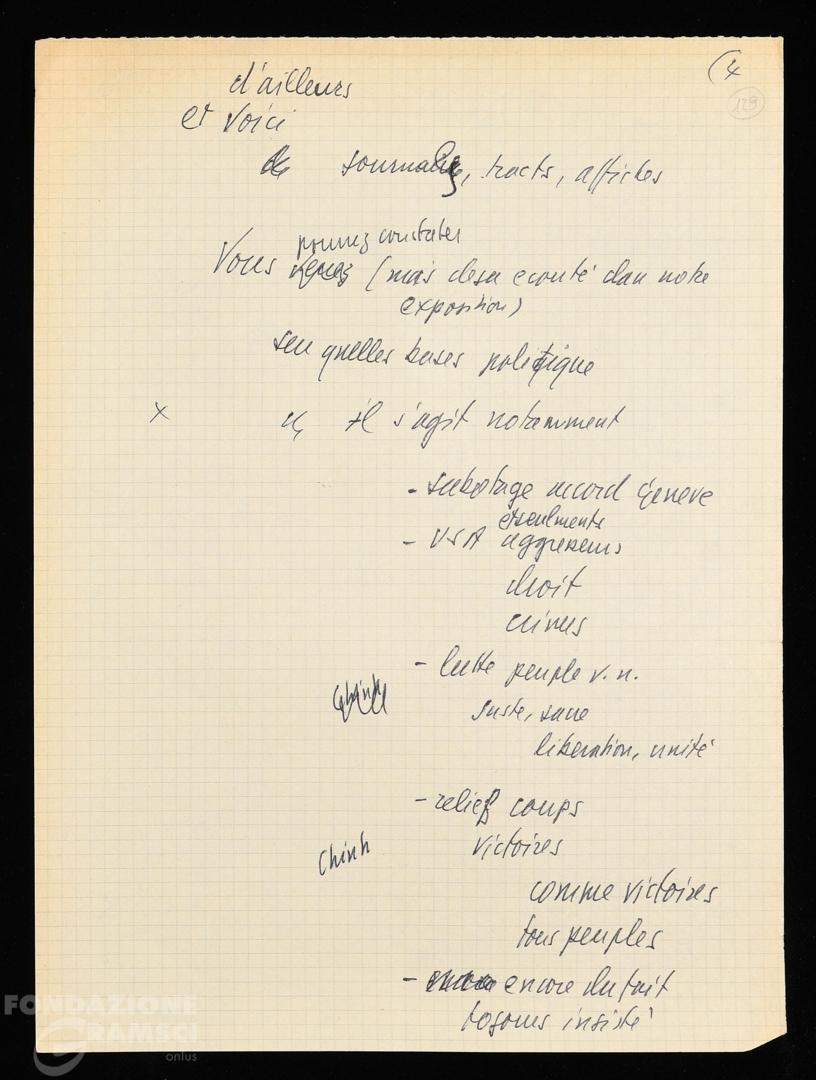 (4
129
d'ailleurs
et voici
de journaux, tracts, affiches
pouvez constater
Vous (mais desa ecouté dan notre
exposition)
seu quelles bases politique
x il s'agit notamment
- sabotage accord Geneve
- USA aggresseurs
droit
crimes
- lutte peuple v. n.
juste, sacre
liberation, unité
- relief coups
victoires
Chinh
comme victoires
tous peuples
- encore du fait
tosours insisté
FONDAZIONE
GRAMSCI
onlus